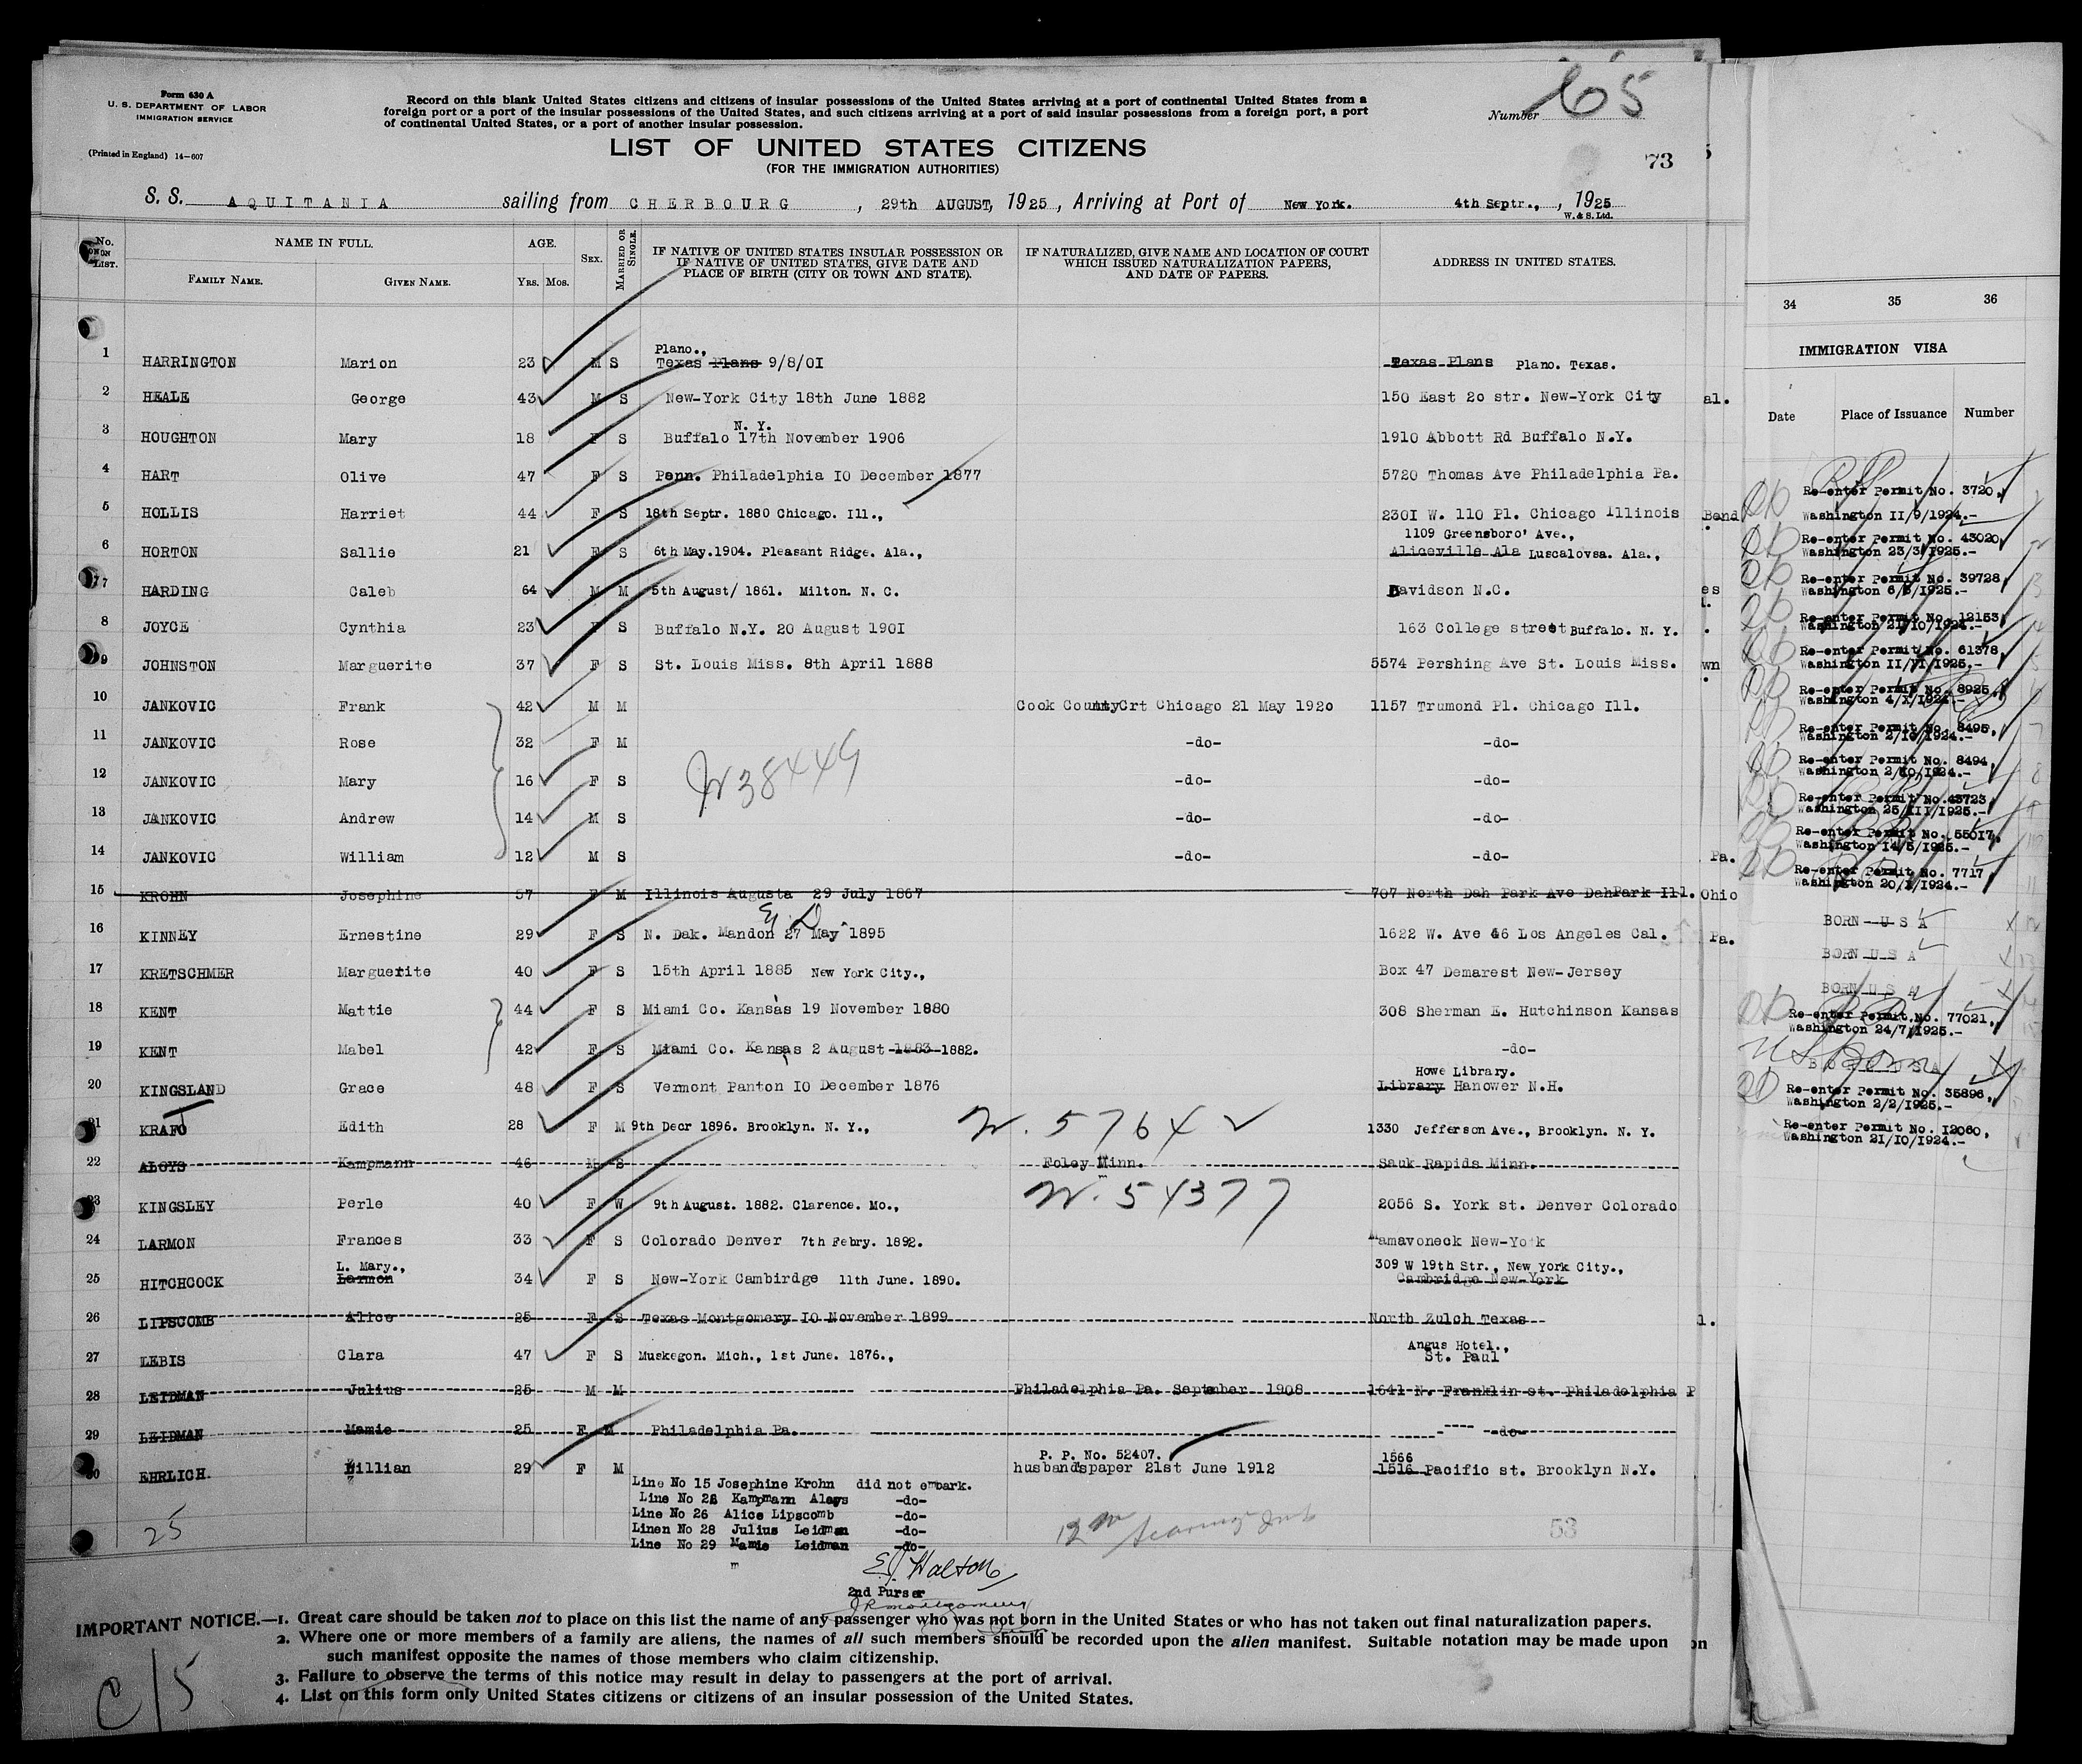 Form 630 A
U. S. DEPARTMENT OF LABOR
IMMIGRATION SERVICE
(Printed in England) 14-607
Record on this blank United States citizens and citizens of insular possessions of the United States arriving at a port of continental United States from a
foreign port or a port of the insular possessions of the United States, and such citizens arriving at a port of said insular possessions from a foreign port, a port
of continental United States, or a port of another insular possession.
Number 65
LIST OF UNITED STATES CITIZENS
(FOR THE IMMIGRATION AUTHORITIES)
73
S. S. AQUITANIA sailing from CHERBOURG, 29th AUGUST, 1925, Arriving at Port of New York. 4th Septr., , 1925
W. & S. Ltd.
No. ON LIST. NAME IN FULL. AGE. SEX. MARRIED OR SINGLE. IF NATIVE OF UNITED STATES INSULAR POSSESSION OR IF NATIVE OF UNITED STATES, GIVE DATE AND PLACE OF BIRTH (CITY OR TOWN AND STATE). IF NATURALIZED, GIVE NAME AND LOCATION OF COURT WHICH ISSUED NATURALIZATION PAPERS, AND DATE OF PAPERS. ADDRESS IN UNITED STATES.
FAMILY NAME. GIVEN NAME. YRS. MOS.
Plano.,
1 HARRINGTON Marion 23 M S Texas Plans 9/8/01 Texas Plans Plano. Texas.
2 HEALE George 43 M S New-York City 18th June 1882 150 East 20 str. New-York City
N. Y.
3 HOUGHTON Mary 18 F S Buffalo 17th November 1906 1910 Abbott Rd Buffalo N.Y.
4 HART Olive 47 F S Penn. Philadelphia 10 December 1877 5720 Thomas Ave Philadelphia Pa.
5 HOLLIS Harriet 44 F S 18th Septr. 1880 Chicago. Ill., 2301 W. 110 Pl. Chicago Illinois
1109 Greensboro' Ave.,
6 HORTON Sallie 21 F S 6th May.1904. Pleasant Ridge. Ala., Aliceville Ala Luscalovsa. Ala.,
7 HARDING Caleb 64 M M 5th August/ 1861. Milton. N. C. Davidson N.C.
8 JOYCE Cynthia 23 F S Buffalo N.Y. 20 August 1901 163 College street Buffalo. N. Y.
9 JOHNSTON Marguerite 37 F S St. Louis Miss. 8th April 1888 5574 Pershing Ave St. Louis Miss.
10 JANKOVIC Frank 42 M M Cook County Crt Chicago 21 May 1920 1157 Trumond Pl. Chicago Ill.
11 JANKOVIC Rose 32 F M -do- -do-
12 JANKOVIC Mary 16 F S -do- -do-
38449
13 JANKOVIC Andrew 14 M S -do- -do-
14 JANKOVIC William 12 M S -do- -do-
15 KROHN Josephine 57 F M Illinois Augusta 29 July 1867 707 North Dah Park Ave DahPark Ill.
16 KINNEY Ernestine 29 F S N. Dak. Mandon 27 May 1895 1622 W. Ave 46 Los Angeles Cal.
17 KRETSCHMER Marguerite 40 F S 15th April 1885 New York City., Box 47 Demarest New-Jersey
18 KENT Mattie 44 F S Miami Co. Kansas 19 November 1880 308 Sherman E. Hutchinson Kansas
19 KENT Mabel 42 F S Miami Co. Kansas 2 August 1883 1882. -do-
Howe Library.
20 KINGSLAND Grace 48 F S Vermont Panton 10 December 1876 Library Hanower N.H.
21 KRAFT Edith 28 F M 9th Decr 1896. Brooklyn. N. Y., N. 5764 1330 Jefferson Ave., Brooklyn. N. Y.
22 ALOYS Kampmann 46 M S Foley Minn. Sauk Rapids Minn.
23 KINGSLEY Perle 40 F W 9th August. 1882. Clarence. Mo., N. 54377 2056 S. York st. Denver Colorado
24 LARMON Frances 33 F S Colorado Denver 7th Febry. 1892. Mamavoneck New-York
L. Mary., 309 W 19th Str., New York City.,
25 HITCHCOCK Larmon 34 F S New-York Cambirdge 11th June. 1890. Cambridge New-York
26 LIPSCOMB Alice 25 F S Texas Montgomery 10 November 1899 North Zulch Texas
Angus Hotel.,
27 LEBIS Clara 47 F S Muskegon. Mich., 1st June. 1876., St. Paul
28 LEIDMAN Julius 25 M M Philadelphia Pa. September 1908 1641 N. Franklin st. Philadelphia P
29 LEIDMAN Mamie 25 F M Philadelphia Pa. -do-
P. P. No. 52407. 1566
30 EHRLICH. Lillian 29 F M husband's paper 21st June 1912 1516 Pacific st. Brooklyn N.Y.
Line No 15 Josephine Krohn did not embark.
Line No 22 Kampmann Aloys -do-
Line No 26 Alice Lipscomb -do-
Linen No 28 Julius Leidman -do-
Line No 29 Mamie Leidman -do-
25
53
E. J. Walton
2nd Purser
IMPORTANT NOTICE.—1. Great care should be taken not to place on this list the name of any passenger who was not born in the United States or who has not taken out final naturalization papers.
2. Where one or more members of a family are aliens, the names of all such members should be recorded upon the alien manifest. Suitable notation may be made upon
such manifest opposite the names of those members who claim citizenship.
3. Failure to observe the terms of this notice may result in delay to passengers at the port of arrival.
4. List on this form only United States citizens or citizens of an insular possession of the United States.
C/5
al.
Bend
es
wn
Pa.
Ohio
Pa.
on
34 35 36
IMMIGRATION VISA
Date Place of Issuance Number
Re-enter Permit No. 3720,
Washington 11/9/1924.-
Re-enter Permit No. 43020,
Washington 23/3/1925.-
Re-enter Permit No. 39728,
Washington 6/3/1925.-
Re-enter Permit No. 12153,
Washington 21/10/1924.-
Re-enter Permit No. 61378,
Washington 11/VI/1925.-
Re-enter Permit No. 8925,
Washington 4/X/1924.-
Re-enter Permit No. 8495,
Washington 2/10/1924.-
Re-enter Permit No. 8494,
Washington 2/10/1924.-
Re-enter Permit No. 43723,
Washington 25/III/1925.-
Re-enter Permit No. 55017,
Washington 14/5/1925.-
Re-enter Permit No. 7717,
Washington 20/X/1924.-
BORN U S A
BORN U S A
BORN U S A
Re-enter Permit No. 77021,
Washington 24/7/1925.-
US Born
BORN U S A
Re-enter Permit No. 35896,
Washington 2/2/1925.-
Re-enter Permit No. 12060,
Washington 21/10/1924.-